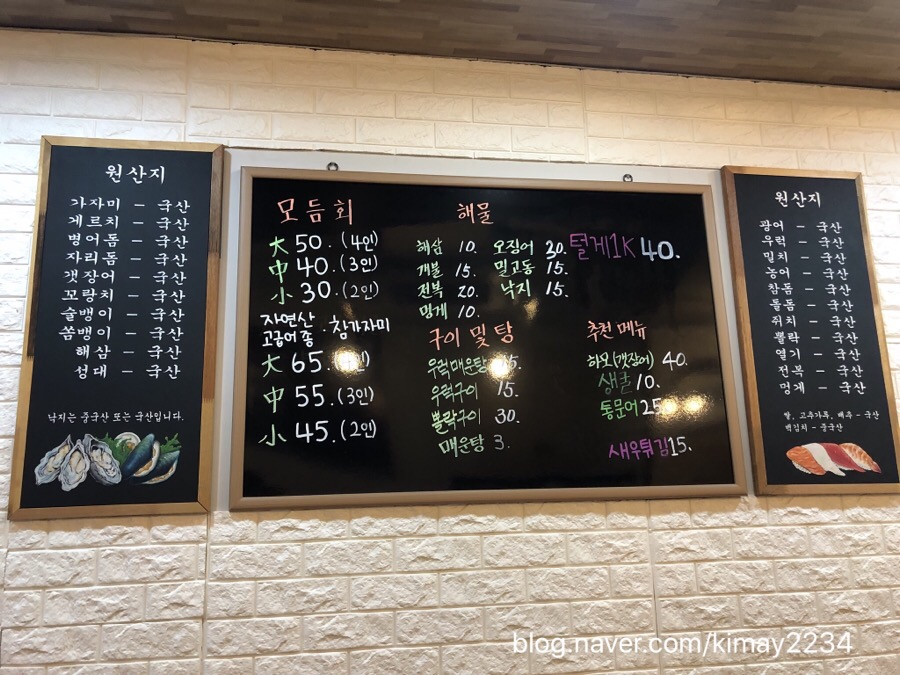 원산지
가자미 - 국산
게르치 - 국산
병어돔 - 국산
자리돔 - 국산
갯장어 - 국산
꼬랑치 - 국산
술뱅이 - 국산
쏨뱅이 - 국산
해삼 - 국산
성대 - 국산
낙지는 중국산 또는 국산입니다.
모듬회
大 50. (4인)
中 40. (3인)
小 30. (2인)
자연산
고급어종 . 참가자미
大 65.
中 55. (3인)
小 45. (2인)
해물
해삼 10. 오징어 30.
개불 15. 밀고동 15.
전복 20. 낙지 15.
멍게 10.
구이 및 탕
우럭매운탕
우럭구이 15.
뽈락구이 30.
매운탕 3.
털게1K 40.
추천 메뉴
하모(갯장어) 40.
생굴 10.
통문어 25
새우튀김 15.
원산지
광어 - 국산
우럭 - 국산
밀치 - 국산
농어 - 국산
참돔 - 국산
돌돔 - 국산
쥐치 - 국산
뽈락 - 국산
열기 - 국산
전복 - 국산
멍게 - 국산
쌀, 고추가루, 배추 - 국산
백김치 - 중국산
blog.naver.com/kimay2234